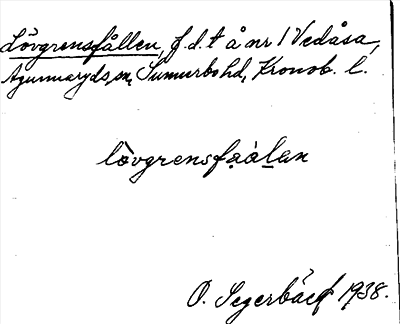 Lövgrensfållen, f.d.t å nr 1 Vedåsa,
Agunnaryds sn, Sunnerbo hd, Kronob. l.
lövgrensfa̱àḻan
O. Segerbäck 1938.